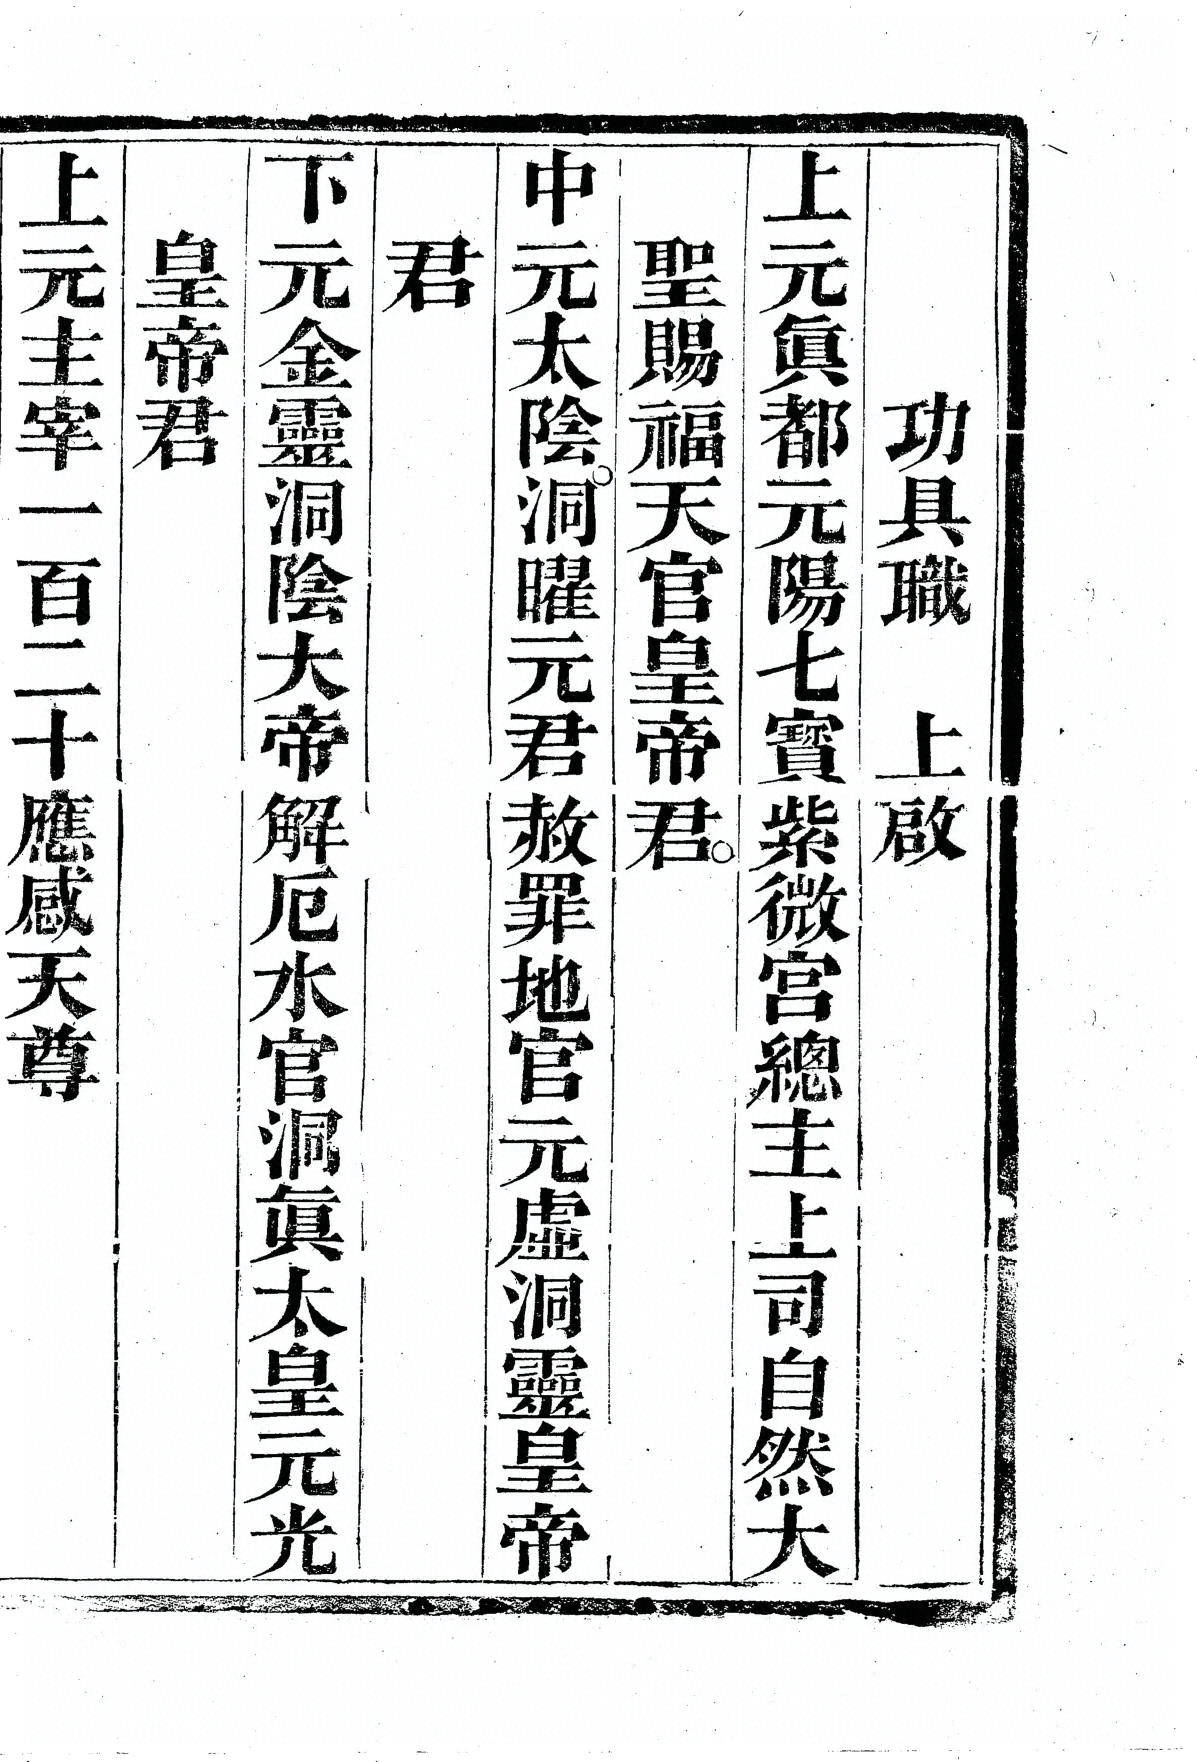 功具職　上啟
上元眞都元陽七寳紫微宮總主上司自然大
聖賜福天官皇帝君。
中元太陰。洞曜元君赦罪地官元虛洞靈皇帝
君
下元金靈洞陰大帝解厄水官洞眞太皇元光
皇帝君
上元主宰一百二十應感天尊